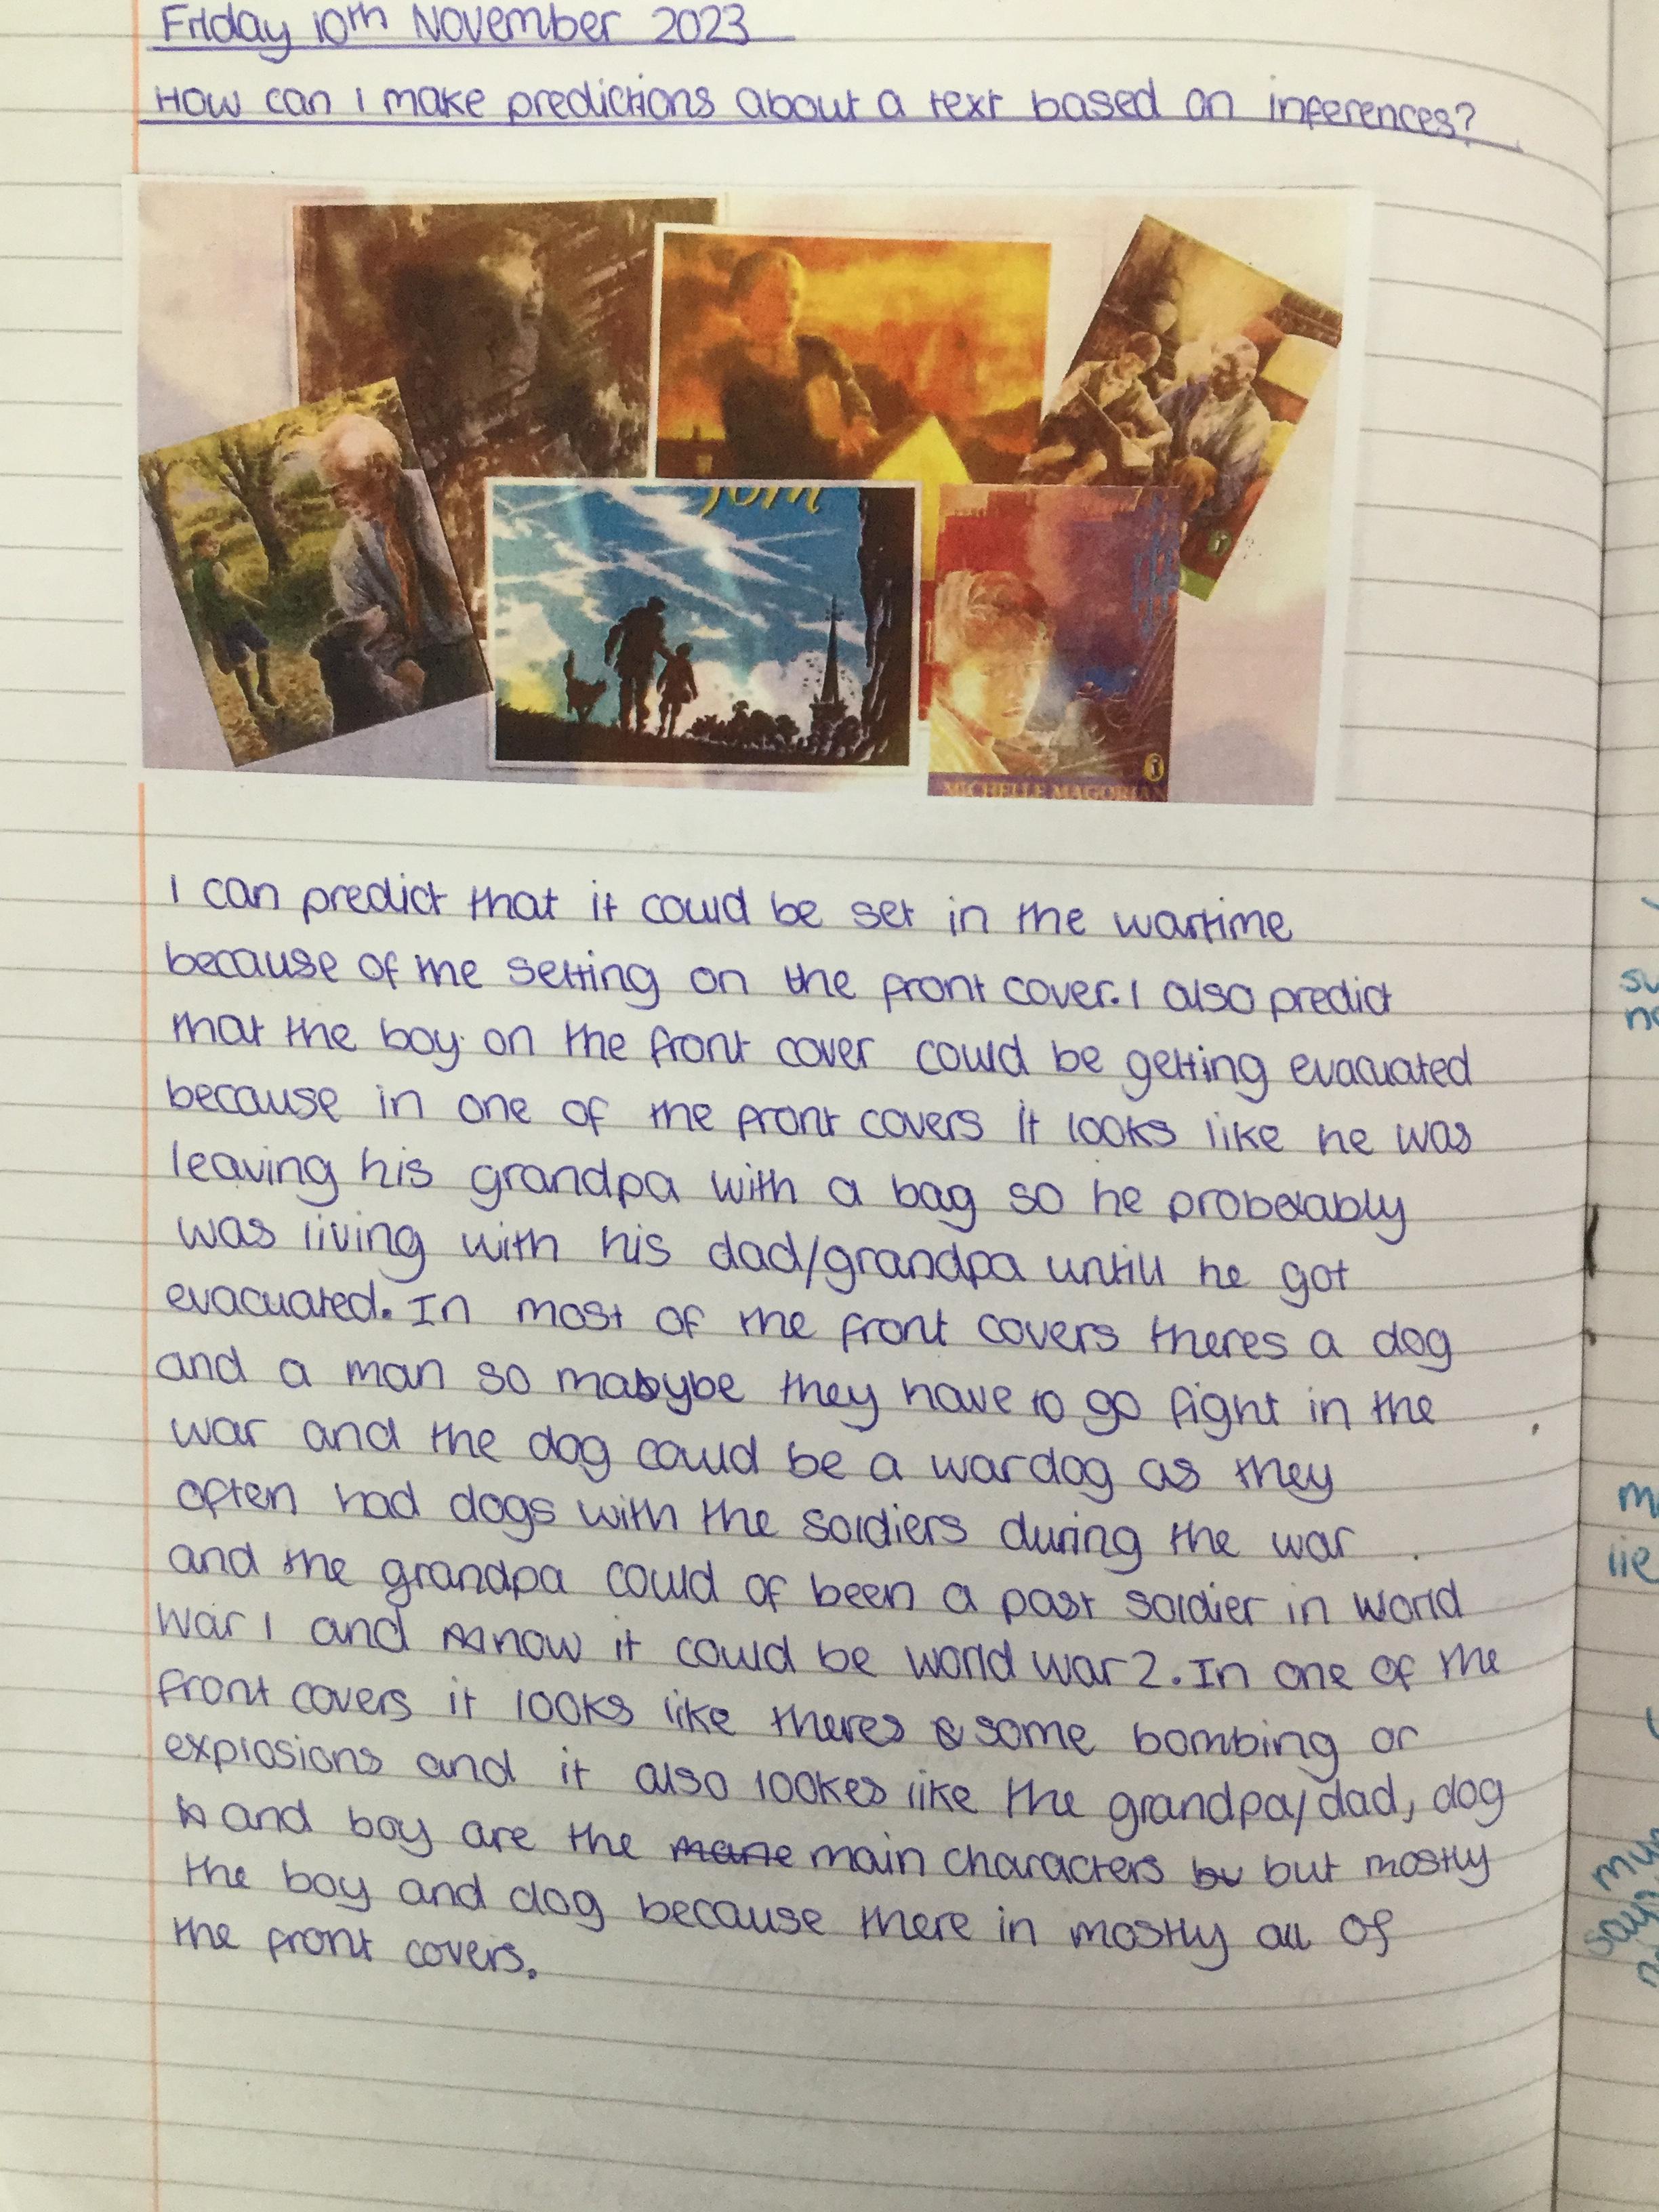 Friday 10th November 2023
How can I make predictions about a text based on inferences?
Tom
MICHELLE MAGORIAN
I can predict that it could be set in the wartime
because of the setting on the front cover. I also predict
that the boy on the front cover could be getting evacuated
because in one of the front covers it looks like he was
leaving his grandpa with a bag so he probably
was living with his dad/grandpa untill he got
evacuated. In most of the front covers theres a dog
and a man so maybe they have to go fight in the
war and the dog could be a wardog as they
often had dogs with the soldiers during the war
and the grandpa could of been a past soldier in world
war 1 and now it could be world war 2. In one of the
front covers it looks like theres some bombing or
explosions and it also lookes like the grandpa/dad, dog
and boy are the mane main characters bu but mostly
the boy and dog because there in mostly all of
the front covers.
su
no
m
lie
my
say